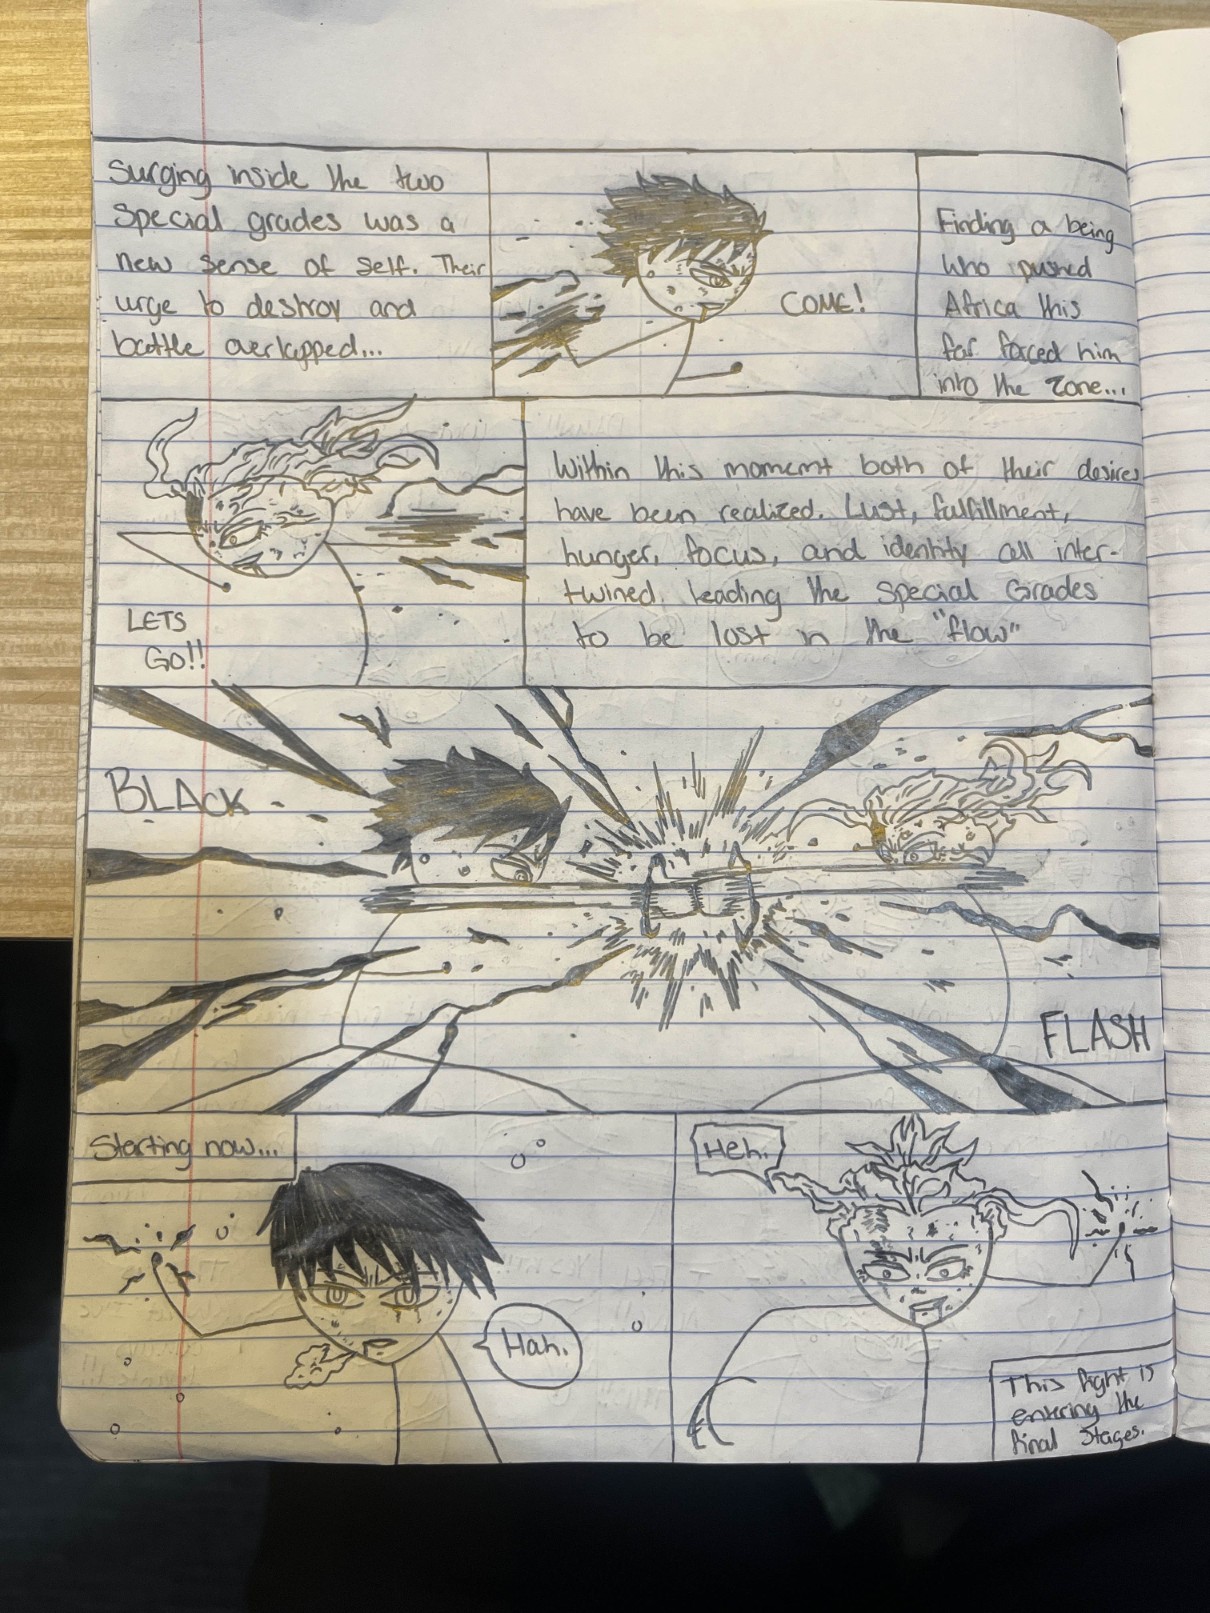 Surging inside the two
special grades was a
new sense of self. Their
urge to destroy and
battle overlapped...
COME!
Finding a being
who pushed
Africa this
far forced him
into the zone...
LETS
GO!!
Within this moment both of their desires
have been realized. Lust, fulfillment,
hunger, focus, and identity all inter-
twined. Leading the Special Grades
to be lost in the "flow"
BLACK
FLASH
Starting now...
Hah.
Heh.
This fight is
entering the
final stages.